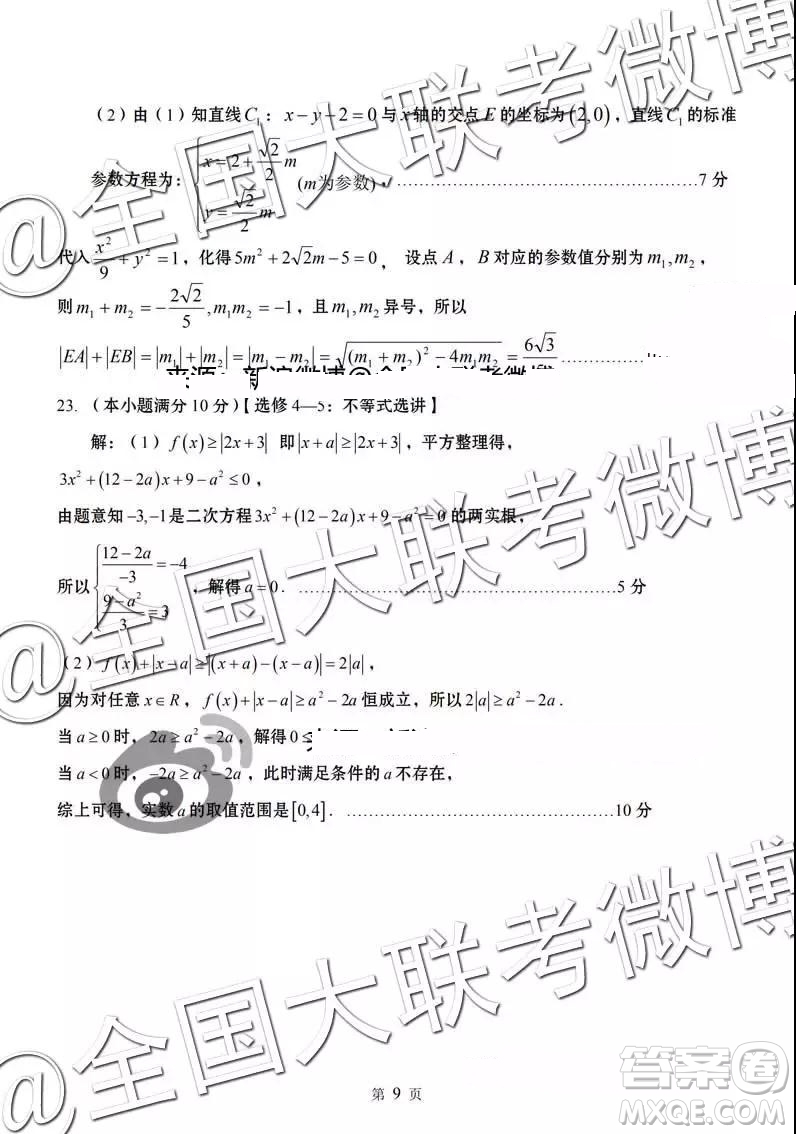 (2)由(1)知直线C₁:x−y−2=0与x轴的交点E的坐标为(2,0),直线C₁的标准
参数方程为:{x=2+(√2/2)m, y=(√2/2)m (m为参数),……………………7分
代入x²/9+y²=1,化得5m²+2√2m−5=0,设点A,B对应的参数值分别为m₁,m₂,
则m₁+m₂=−2√2/5,m₁m₂=−1,且m₁,m₂异号,所以
|EA|+|EB|=|m₁|+|m₂|=|m₁−m₂|=√((m₁+m₂)²−4m₁m₂)=6√3/5……………
23.(本小题满分10分)【选修4—5:不等式选讲】
解:(1)f(x)≥|2x+3| 即|x+a|≥|2x+3|,平方整理得,
3x²+(12−2a)x+9−a²≤0,
由题意知−3,−1是二次方程3x²+(12−2a)x+9−a²=0的两实根,
所以{(12−2a)/−3=−4, (9−a²)/3=3,解得a=0.……………………5分
(2)f(x)+|x−a|≥|(x+a)−(x−a)|=2|a|,
因为对任意x∈R,f(x)+|x−a|≥a²−2a恒成立,所以2|a|≥a²−2a.
当a≥0时,2a≥a²−2a,解得0≤
当a<0时,−2a≥a²−2a,此时满足条件的a不存在,
综上可得,实数a的取值范围是[0,4].……………………10分
第 9 页
@全国大联考微博
@全国大联考微博
@全国大联考微博
答案圈
MXQE.COM